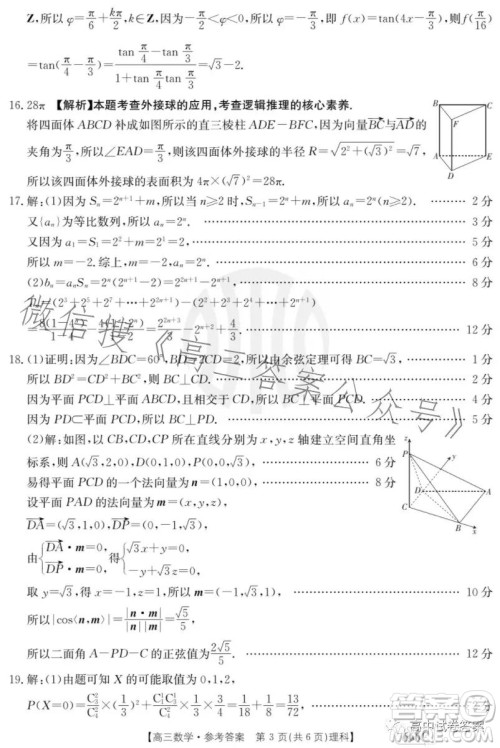 Z,所以φ=π/6+kπ/2,k∈Z,因为-π/2<φ<0,所以φ=-π/3,即 f(x)=tan(4x-π/3),则f(π/16)
=tan(π/4-π/3)=(tan π/4-tan π/3)/(1+tan π/4 tan π/3)=√3-2.
16.28π 【解析】本题考查外接球的应用,考查逻辑推理的核心素养.
将四面体 ABCD 补成如图所示的直三棱柱 ADE-BFC,因为向量BC与AD的
夹角为π/3,所以∠EAD=π/3,则该四面体外接球的半径 R=√(2²+(√3)²)=√7,
所以该四面体外接球的表面积为 4π×(√7)²=28π.
B C F A E D
17.解:(1)因为 Sₙ=2ⁿ⁺¹+m,所以当 n≥2 时,Sₙ₋₁=2ⁿ+m,所以 aₙ=2ⁿ(n≥2). 2分
又{aₙ}为等比数列,所以 aₙ=2ⁿ. 3分
又因为 a₁=S₁=2²+m=2¹=2, 5分
所以 m=-2. 综上,m=-2,aₙ=2ⁿ. 6分
(2)bₙ=aₙSₙ=2ⁿ(2ⁿ⁺¹-2)=2²ⁿ⁺¹-2ⁿ⁺¹, 8分
(2³+2⁵+2⁷+⋯+2²ⁿ⁺¹)-(2²+2³+2⁴+⋯+2ⁿ⁺¹)
=2²ⁿ⁺³/3-2ⁿ⁺²+4/3. 12分
18.(1)证明:因为∠BDC=60°,BD=2CD=2,所以由余弦定理可得 BC=√3, 1分
所以 BD²=CD²+BC²,所以 BC⊥CD. 2分
因为平面 PCD⊥平面 ABCD,且相交于 CD,所以 BC⊥平面 PCD. 4分
因为 PD⊂平面 PCD,所以 BC⊥PD. 5分
(2)解:如图,以 CB,CD,CP 所在直线分别为 x,y,z 轴建立空间直角坐
标系,则 A(√3,2,0),D(0,1,0),P(0,0,√3), 6分
易得平面 PCD 的一个法向量为 n=(1,0,0), 8分
设平面 PAD 的法向量为 m=(x,y,z),
DA=(√3,1,0),DP=(0,-1,√3),
由{DA·m=0,DP·m=0,得{√3x+y=0,-y+√3z=0,
取 y=√3,得 x=-1,z=1,所以 m=(-1,√3,1), 10分
所以|cos⟨n,m⟩|=|n·m|/(|n||m|)=√5/5,
所以二面角 A-PD-C 的正弦值为2√5/5. 12分
z P D y A C B x
19.解:(1)由题可知 X 的可能取值为 0,1,2,
P(X=0)=C₃²/C₄²×(1/3)²+C₃¹C₁¹/C₄²×1/3×3/4=1/18+1/8=13/72,
【高三数学·参考答案 第 3 页(共 6 页)理科】
微信搜《高三答案公众号》